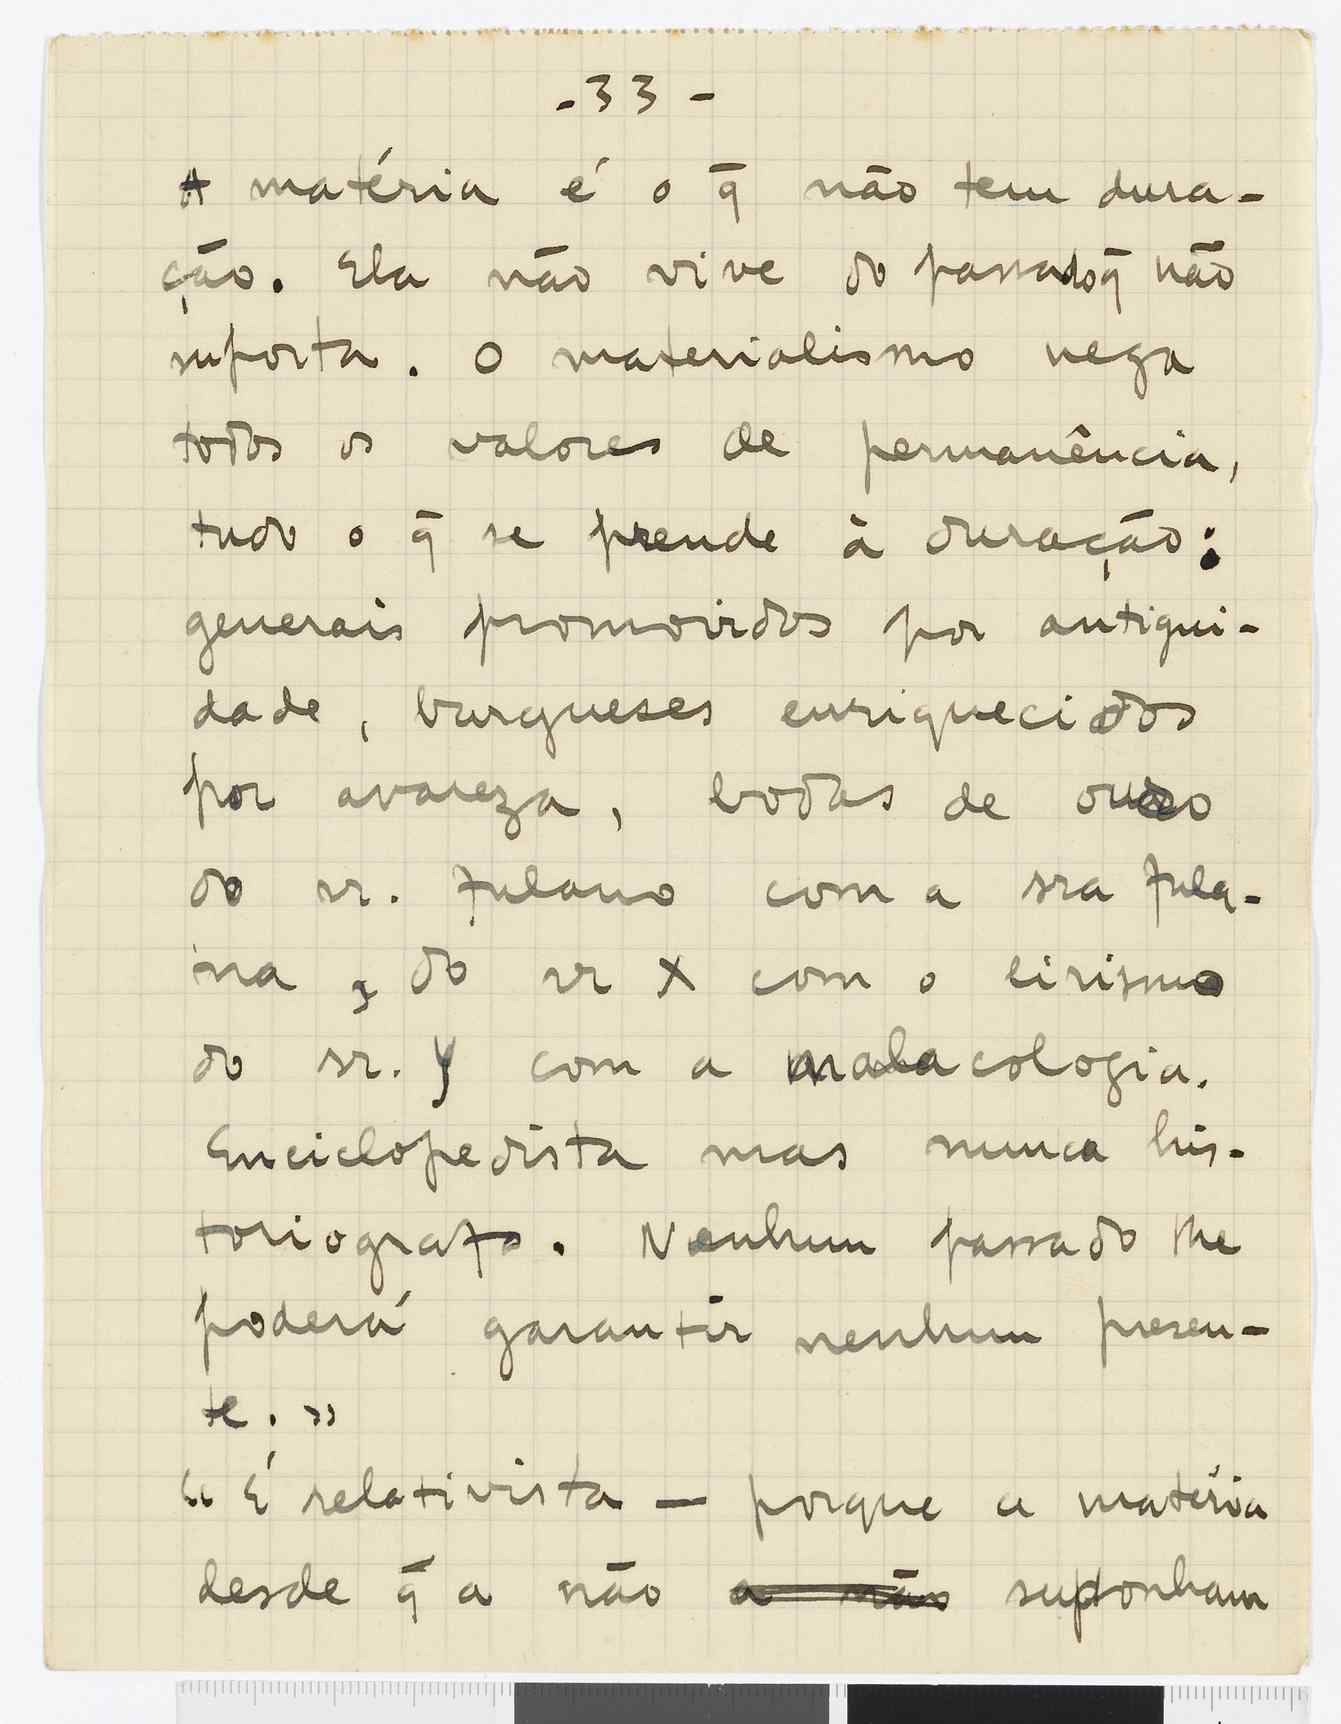 - 33 -
A matéria é o q̄ não tem dura-
ção. Ela não vive do passado q̄ não
suporta. O materialismo nega
todos os valores de permanência,
tudo o q̄ se prende à duração:
generais promovidos por antigui-
dade, burgueses enriquecidos
por avareza, bodas de ouro
do sr. fulano com a sra fula-
na, do sr X com o lirismo
do sr. Y com a malacologia.
Enciclopedista mas nunca his-
toriografo. Nenhum passado lhe
poderá garantir nenhum presen-
te. »
« É relativista — porque a matéria
desde q̄ a não a não suponham